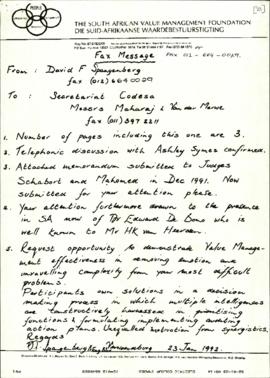 PEOPLE
THE SOUTH AFRICAN VALUE MANAGEMENT FOUNDATION
DIE SUID-AFRIKAANSE WAARDEBESTUURSTIGTING
Fax Message
From : David F Spangenberg
fax (012) 664 0029
To : Secretariat Codesa
Messrs Maharaj & Van der Merwe
fax (011) 397 2211
1. Number of pages including this one are 3.
2. Telephonic discussion with Ashley Symes confirmed.
3. Attached memorandum submitted to Judges
Schabort and Mahomed in Dec 1991. Now
submitted for your attention please.
4. Your attention furthermore drawn to the presence
in SA now of Dr Edward De Bono who is
well known to Mr HK van
5. Request opportunity to demonstrate Value Manage-
ment effectiveness in removing emotion and
unravelling complexity from your most difficult
problems.
Participants own solutions in a decision
making process in which multiple intelligences
are constructively harnessed in prioritising
functions & formulating implementing
action plans. Unequalled motivation from synergistics.
Regards
Spangenberg 23 Jan 1992.